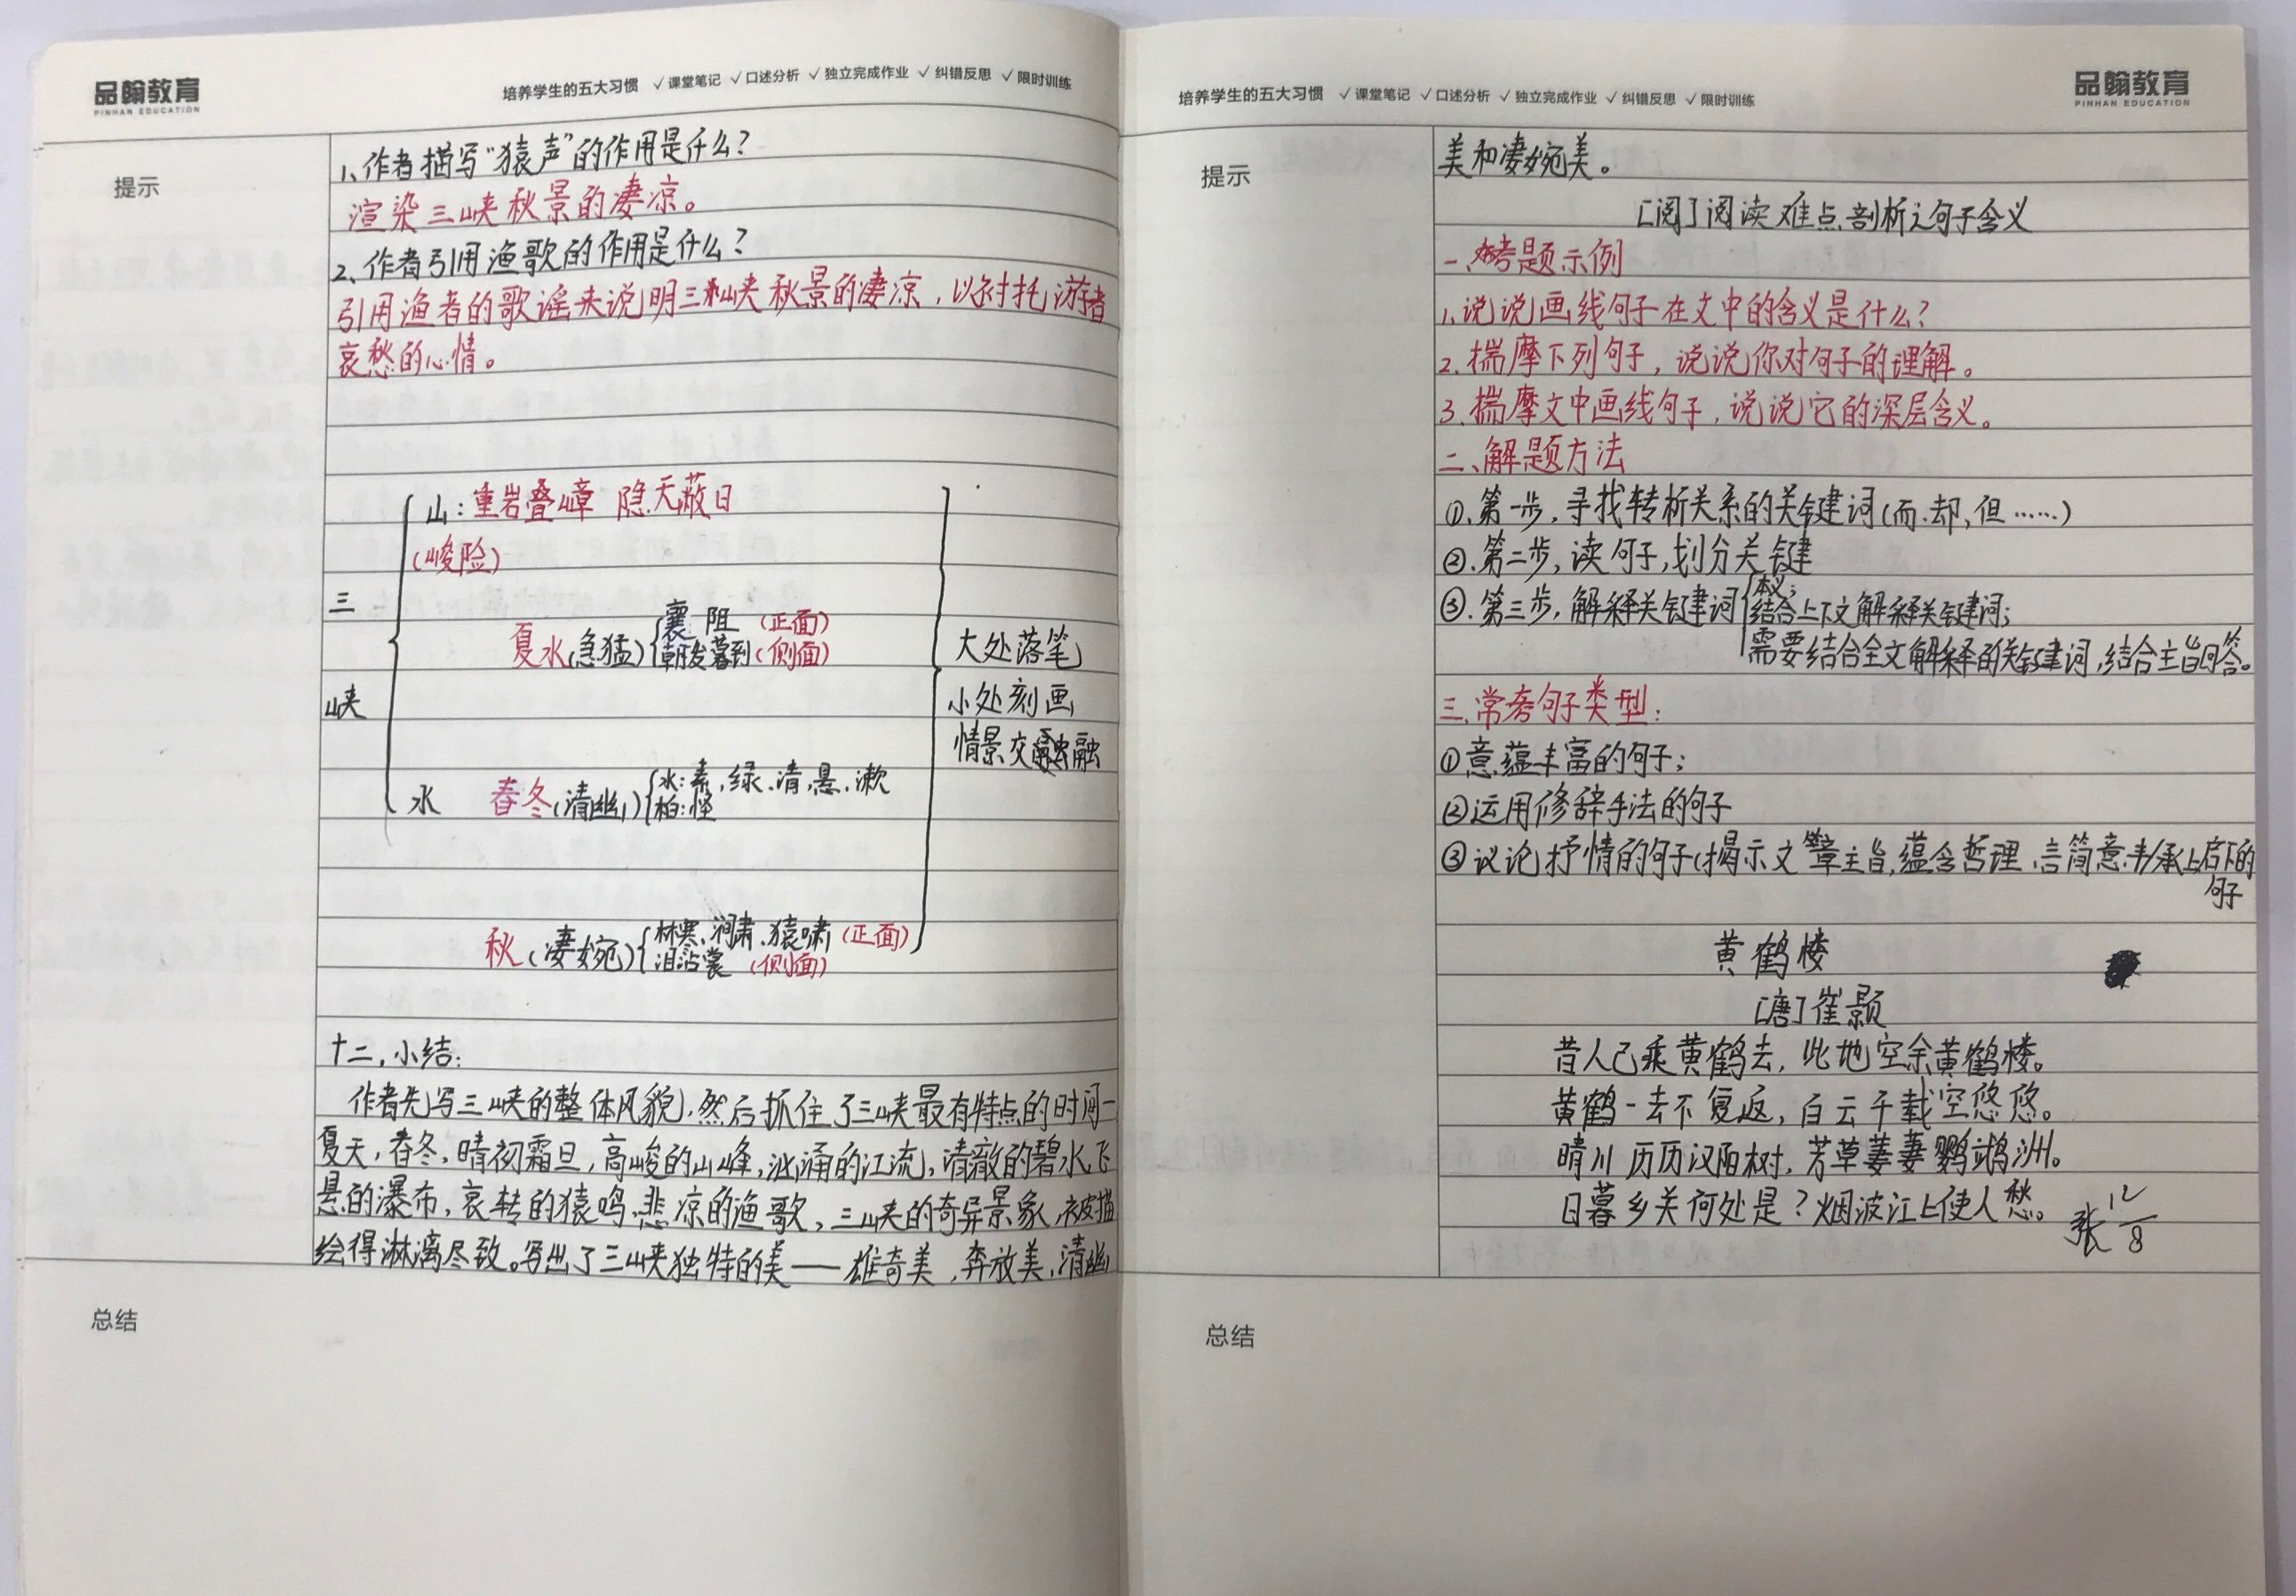 品翰教育
PINHAN EDUCATION
培养学生的五大习惯 √课堂笔记 √口述分析 √独立完成作业 √纠错反思 √限时训练
提示
1、作者描写“猿声”的作用是什么?
渲染三峡秋景的凄凉。
2、作者引用渔歌的作用是什么?
引用渔者的歌谣来说明三峡秋景的凄凉,以衬托游者
哀愁的心情。
山:重岩叠嶂 隐天蔽日
(峻险)
三
峡
夏水(急猛)
襄 阻 (正面)
朝发暮到(侧面)
水 春冬(清幽)
水:素,绿、清,悬、漱
柏:怪
秋(凄婉)
林寒、涧肃、猿啸(正面)
泪沾裳 (侧面)
大处落笔
小处刻画
情景交融
十二,小结:
作者先写三峡的整体风貌,然后抓住了三峡最有特点的时间一
夏天,春冬,晴初霜旦,高峻的山峰,汹涌的江流,清澈的碧水,飞
悬的瀑布,哀转的猿鸣,悲凉的渔歌,三峡的奇异景象,被描
绘得淋漓尽致。写出了三峡独特的美——雄奇美,奔放美,清幽
总结
培养学生的五大习惯 √课堂笔记 √口述分析 √独立完成作业 √纠错反思 √限时训练
品翰教育
PINHAN EDUCATION
提示
美和凄婉美。
[阅]阅读难点剖析之句子含义
一、考题示例
1、说说画线句子在文中的含义是什么?
2.揣摩下列句子,说说你对句子的理解。
3.揣摩文中画线句子,说说它的深层含义。
二、解题方法
①.第一步,寻找转析关系的关键词(而.却,但……)
②.第二步,读句子,划分关键
③.第三步,解释关键词
本义;
结合上下文解释关键词;
需要结合全文解释的关键词,结合主旨回答。
三.常考句子类型:
①意蕴丰富的句子;
②运用修辞手法的句子
③议论抒情的句子(揭示文章主旨,蕴含哲理、言简意丰/承上启下的
句子
黄鹤楼
[唐]崔颢
昔人已乘黄鹤去,此地空余黄鹤楼。
黄鹤一去不复返,白云千载空悠悠。
晴川历历汉阳树,芳草萋萋鹦鹉洲。
日暮乡关何处是?烟波江上使人愁。
张 12/8
总结